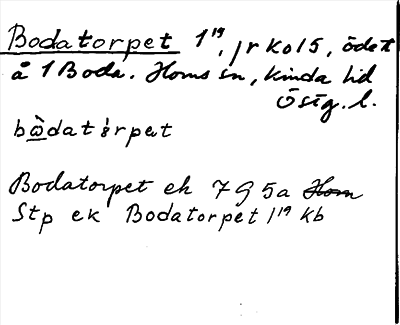 Bodatorpet 1¹⁹, jr ko15, ödet
å 1 Boda. Horns sn, kinda hd
Östg. l.
bὼdatɷrpət
Bodatorpet ek 7G5a Horn
Stp ek Bodatorpet 1¹⁹ kb